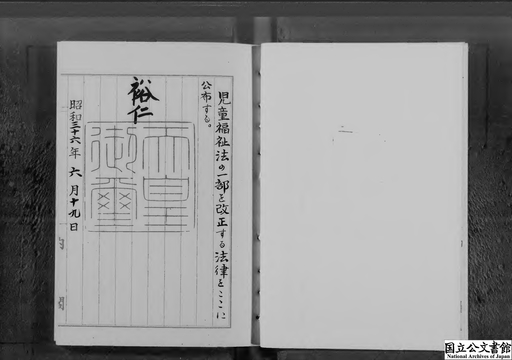 児童福祉法の一部を改正する法律をここに
公布する。
裕仁
天皇
御璽
昭和三十六年六月十九日
国立公文書館
National Archives of Japan